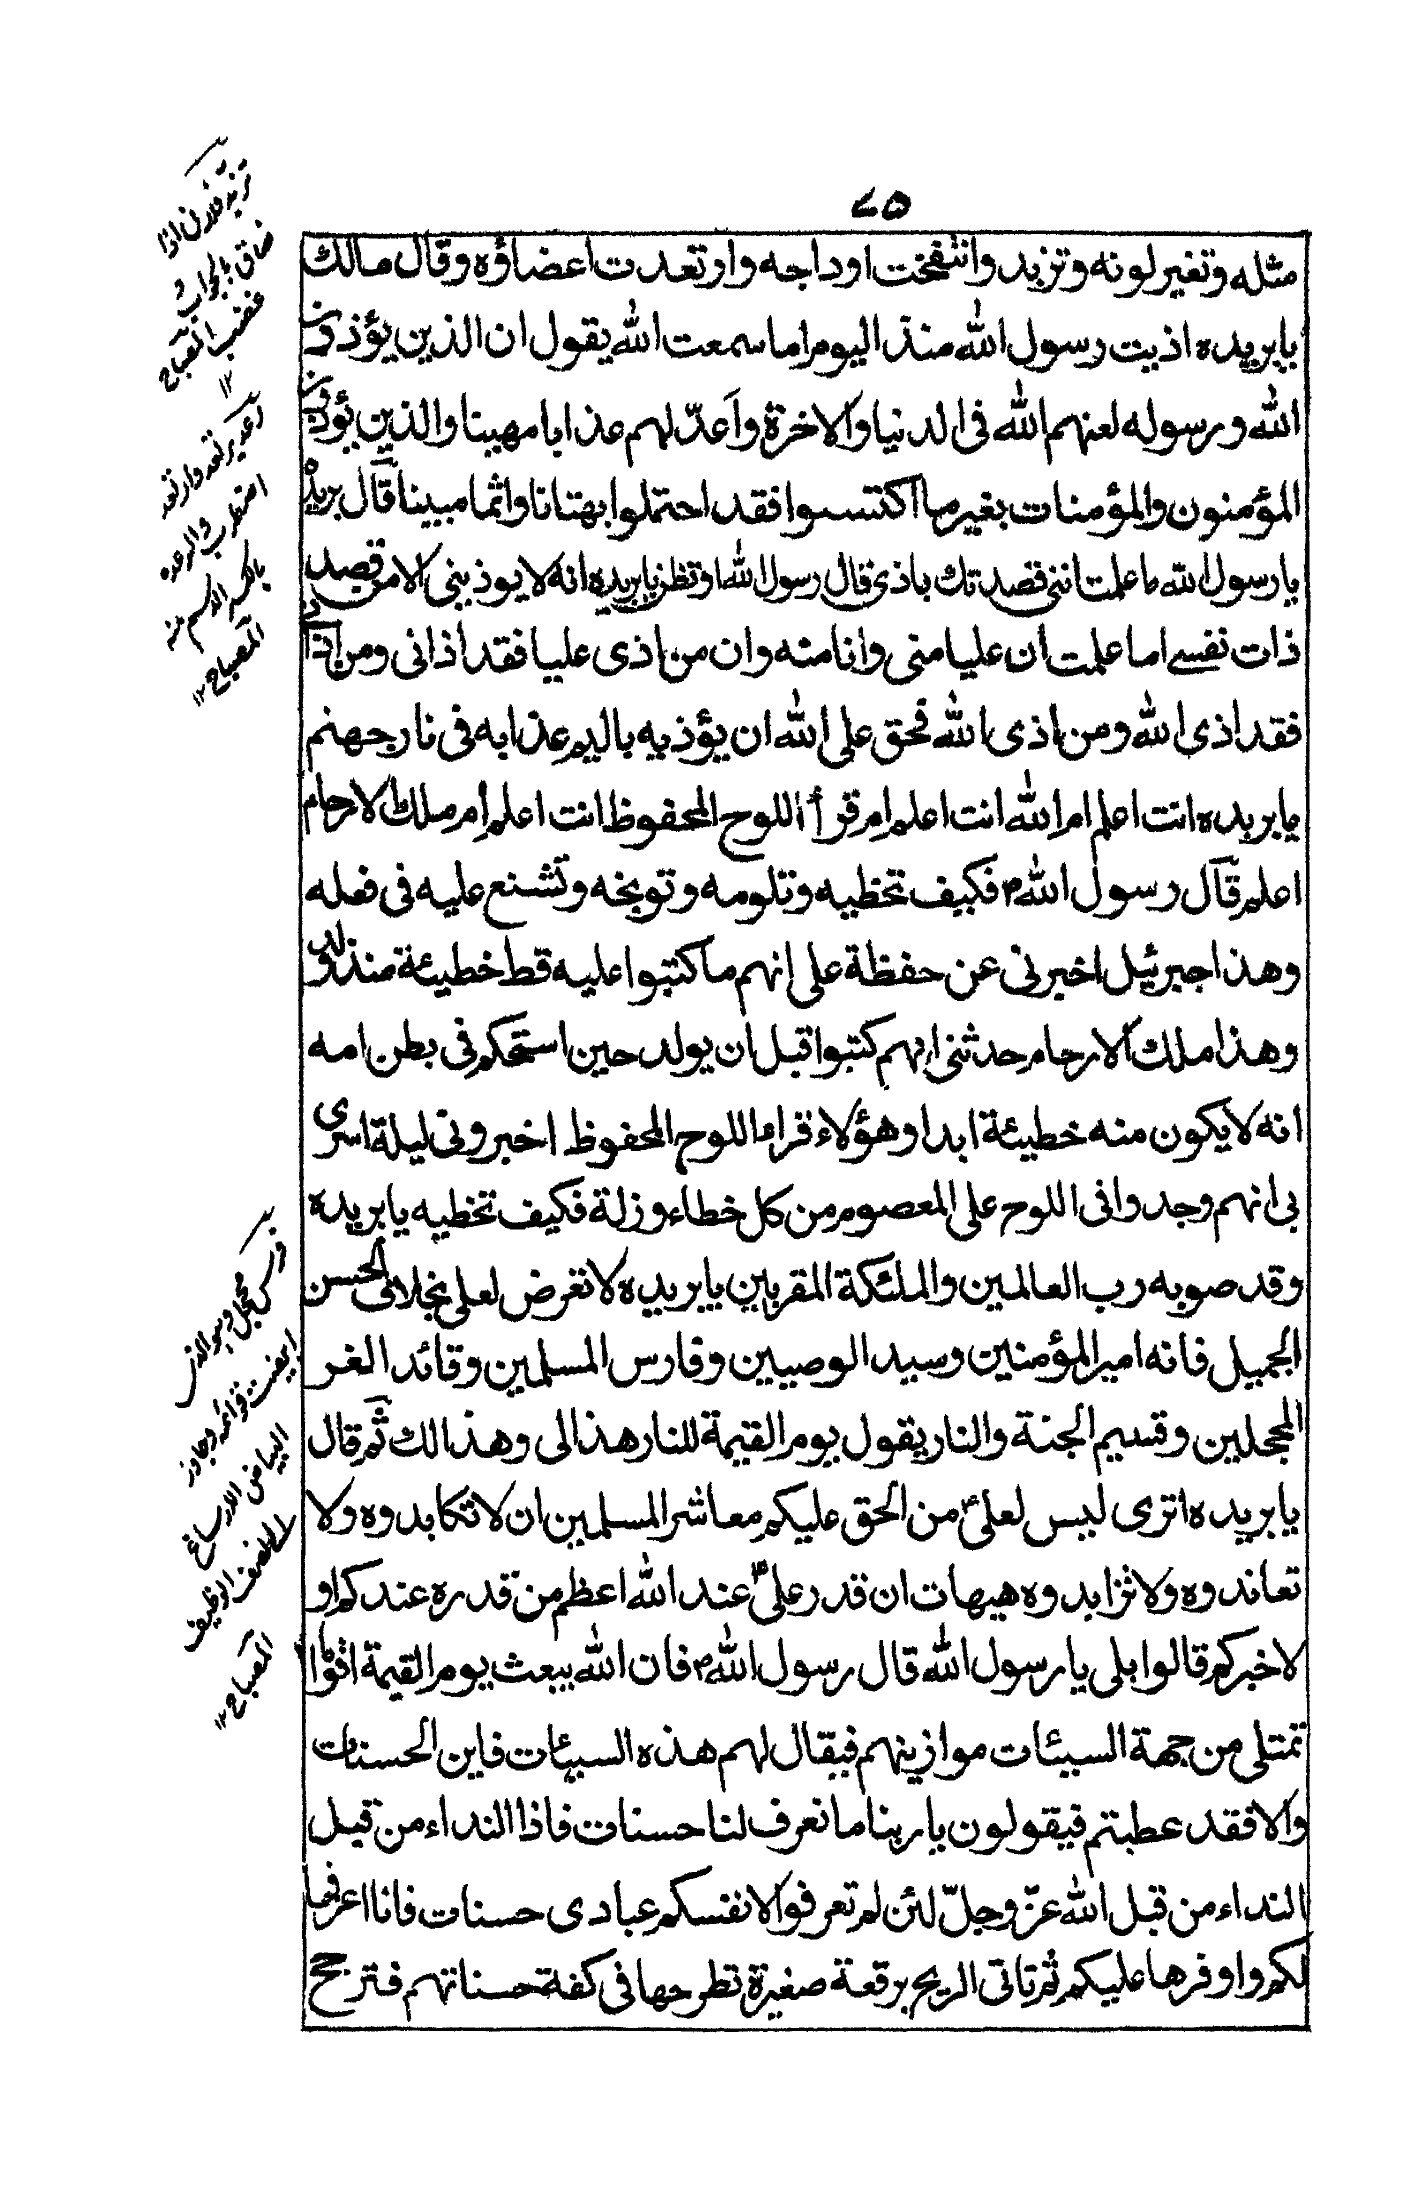 ٧٥
مثله وتغير لونه وتزبد وانتفخت اوداجه وارتعدت اعضاؤه وقال مالك
يابريده اذيت رسول الله منذ اليوم اما سمعت الله يقول ان الذين يؤذون
الله ورسوله لعنهم الله فى الدنيا والاخرة واعدّ لهم عذابا مهينا والذين يؤذون
المؤمنون والمؤمنات بغير ما اكتسبوا فقد احتملوا بهتانا واثما مبينا قال بريدة
يا رسول الله ما علمت اننى قصدتك باذى قال رسول الله او تظن يابريده انه لا يوذينى الا من قصد
ذات نفسے اما علمت ان عليا منى وانا منه وان من اذى عليا فقد اذانى ومن اذانى
فقد اذى الله ومن اذى الله فحق على الله ان يؤذيه باليم عذابه فى نار جهنم
يا بريده انت اعلم ام الله انت اعلم ام قرأ اللوح المحفوظ انت اعلم ام ملك الارحام
اعلم قال رسول الله ص فكيف تخطيه وتلومه وتوبخه وتشنع عليه فى فعله
وهذا جبرئيل اخبرنى عن حفظة على انهم ما كتبوا عليه قط خطيئة منذ ولد
وهذا ملك الارحام حدثنى انهم كتبوا قبل ان يولد حين استحكم فى بطن امه
انه لا يكون منه خطيئة ابدا وهؤلاء قراء اللوح المحفوظ اخبرونى ليلة اسرى
بى انهم وجدوا فى اللوح على المعصوم من كل خطاء وزلة فكيف تخطيه يا بريده
وقد صوبه رب العالمين والملئكة المقربين يا بريده لا تعرض لعلى بخلاف الحسن
الجميل فانه امير المؤمنين وسيد الوصيين وفارس المسلمين وقائد الغر
المحجلين وقسيم الجنة والنار يقول يوم القيمة للنار هذا لى وهذا لك ثم قال
يا بريده اترى ليس لعلى من الحق عليكم معاشر المسلمين ان لا تكابدوه ولا
تعاندوه ولا تزابدوه هيهات ان قدر على عند الله اعظم من قدره عندكم او
لا خبركم قالوا بلى يا رسول الله قال رسول الله ص فان الله يبعث يوم القيمة اقواما
تمتلى من جهة السيئات موازينهم فيقال لهم هذه السيئات فاين الحسنات
والا فقد عطبتم فيقولون يا ربنا ما نعرف لنا حسنات فاذا النداء من قبل
النداء من قبل الله عزّ وجلّ لئن لم تعرفوا لانفسكم عبادى حسنات فانا اعرفها
لكم واوفرها عليكم ثم تاتى الريح برقعة صغيرة تطرحها فى كفة حسناتهم فترجح
تزبد فلان اذا
ضاق بالجواب و
غضب المصباح
١٢
رعد يرتعد وارتعد
اضطرب والرعده
بالكسر الاسم منه
المصباح ١٢
فرس محجل وهو الذى
ابيضت قوائمه وجاوز
البياض الارساغ
الى نصف الوظيف
المصباح ١٢